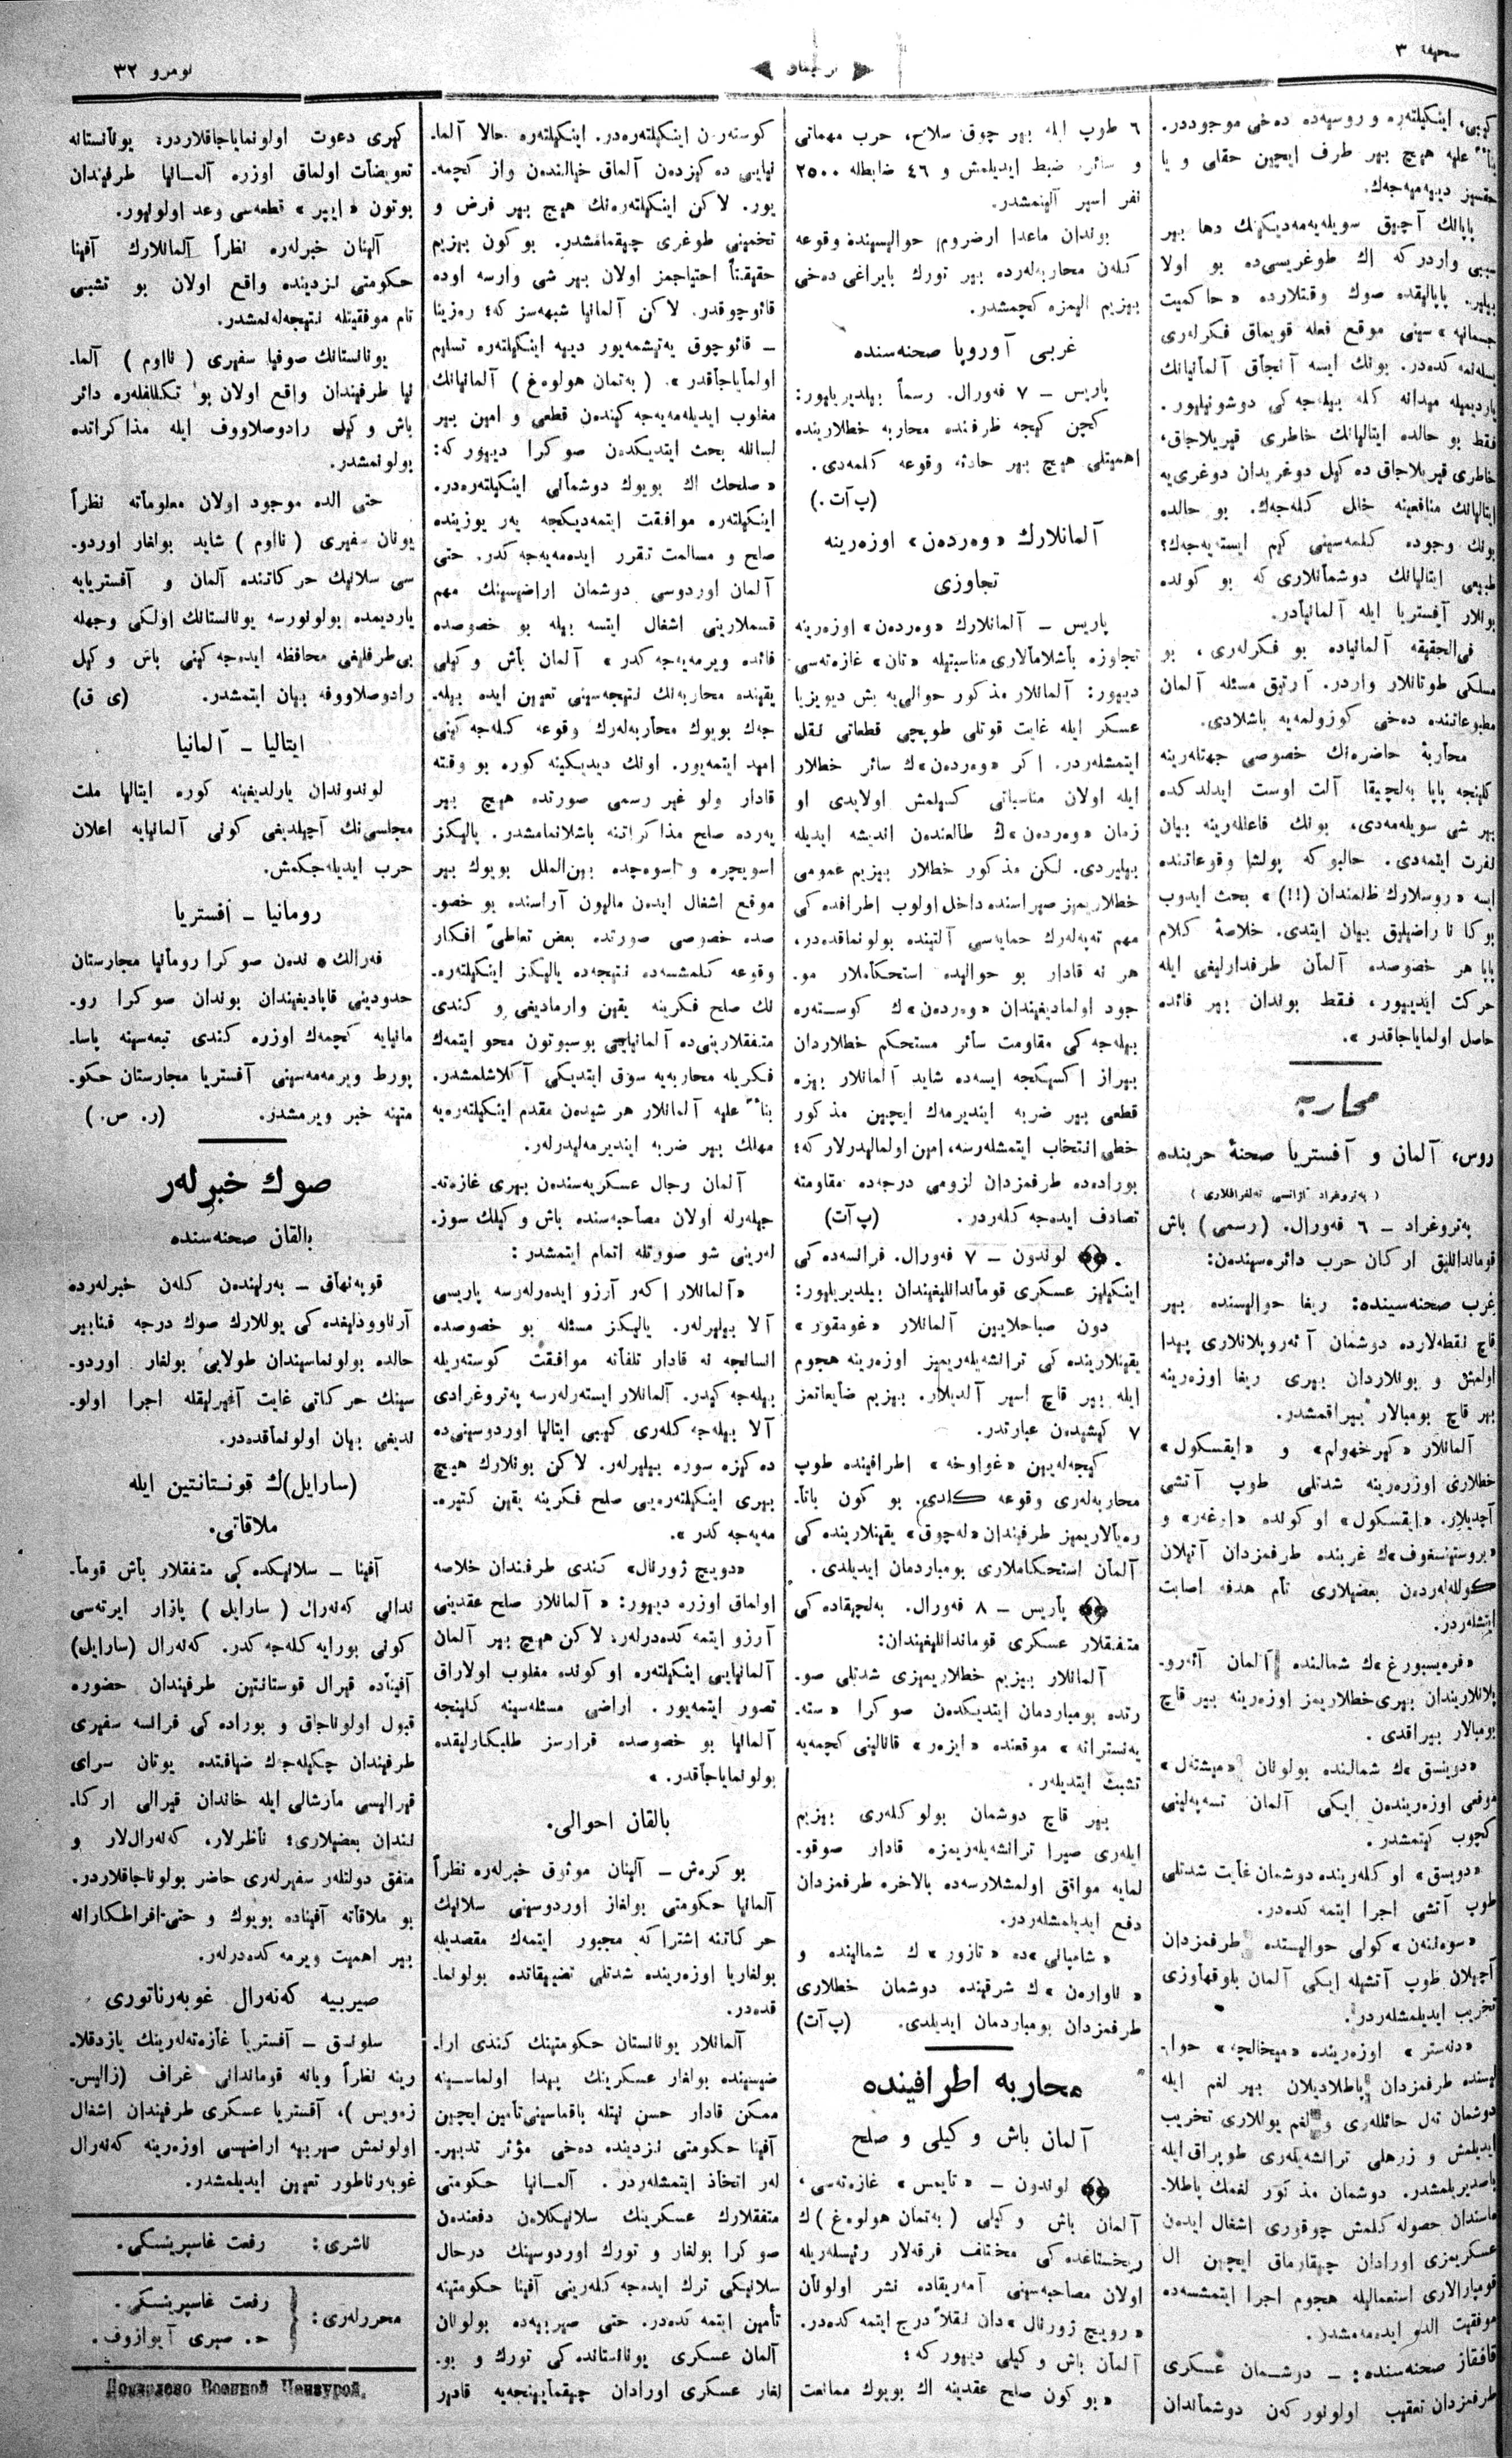 صحیفه ٣
ترجمان
نومرو ٣٢
كبی، اینكیلتەرە و روسیەدە دەخی موجوددر.
بناءً علیه هیچ بیر طرف ایچین حقلی و یا
حقسز دییەمیەجەك.
پاپانك آچیق سویلەیەمەدیكینك دها بیر
سببی واردركه اك طوغریسی‌ده بو اولا
بیلیر. پاپالیقده صوك وقتلارده «حاكمیت
جسمانیه» سینی موقع فعله قویماق فكرلەری
بسلەنمەكدەدر. بونك ایسه آنجاق آلمانیانك
یاردیمیله میدانه كله بیلەجەكی دوشونیلیور.
فقط بو حالده ایتالیانك خاطری قیریلاجاق،
خاطری قیریلاجاق دەكیل دوغریدان دوغری‌یه
ایتالیانك منافعینه خلل كلەجەك. بو حالده
بونك وجوده كلمەسینی كیم ایستەیەجەك؟
طبیعی ایتالیانك دوشمانلاری كه بو كونده
بونلار آفستریا ایله آلمانیادر.
فی‌الحقیقه آلمانیاده بو فكرلەری، بو
مسلكی طوتانلار واردر. آرتیق مسئله آلمان
مطبوعاتنده دەخی كوزولمەیه باشلادی.
محاربهٔ حاضرەنك خصوصی جهتلەرینه
كلینجه پاپا بەلچیقا آلت اوست ایدلدكده
بیر شی سویلەمەدی، بونك فاعللەرینه بیان
نفرت ایتمەدی. حالبوكه پولشا وقوعاتنده
ایسه «روسلارك ظلمندان (!!)» بحث ایدوب
بوكا ناراضیلیق بیان ایتدی. خلاصهٔ كلام
پاپا هر خصوصده آلمان طرفدارلیغی ایله
حركت ایدییور، فقط بوندان بیر فائده
حاصل اولمایاجاقدر».
محاربه
روس، آلمان و آفستریا صحنهٔ حربنده
(پەتروغراد آژانسی تەلغرافلاری)
پەتروغراد – ٦ فەورال. (رسمی) باش
قوماندانلیق اركان حرب دائرەسیندەن:
غرب صحنەسینده: ریغا حوالیسنده بیر
قاچ نقطەلارده دوشمان آئەروپلانلاری پیدا
اولمش و بونلاردان بیری ریغا اوزەرینه
بیر قاچ بومبالار بیراقمشدر.
آلمانلار «كیرخهولم» و «ایقسكول»
خطلاری اوزرەرینه شدتلی طوپ آتشی
آچدیلار. «ایقسكول» اوكونده «اوغەر» و
غربنده طرفمزدان آتیلان
كوللەلەردەن بعضیلاری تام هدفه اصابت
ایتشلەردر.
شمالنده آلمان آئەرو-
پلانلاریندان بیری خطلاریمز اوزەرینه بیر قاچ
بومبالار بیراقدی.
«دوینسق»ك شمالنده بولونان
موقعی اوزەریندەن ایكی آلمان تسەپەلینی
كچوب كیتمشدر.
«دوینسق» اوكلەرینده دوشمان غایت شدتلی
طوپ آتشی اجرا ایتمەكدەدر.
«سوەنتەن» كولی حوالیسنده طرفمزدان
آچیلان طوپ آتشیله ایكی آلمان بلوقهاوزی
تخریب ایدیلمشلەردر.
«دنەستر» اوزەرینده «میخالچه» حوا-
لیسنده طرفمزدان پاطلادیلان بیر لغم ایله
دوشمان تەل حائللەری و لغم یوللاری تخریب
ایدیلمش و زرهلی ترانشەیلەری طوپراق ایله
باصدیریلمشدر. دوشمان مذكور لغمك پاطلا-
ماسندان حصوله كلمش چوقوری اشغال ایدەن
عسكریمزی اورادان چیقارماق ایچین ال
قومبارالاری استعمالیله هجوم اجرا ایتمشسەده
موفقیت الدە ایدەمەمشدر.
قافقاز صحنەسنده: – دوشمان عسكری
طرفمزدان تعقیب اولونوركەن دوشماندان
٦ طوپ ایله بیر چوق سلاح، حرب مهماتی
و سائره ضبط ایدیلمش و ٤٦ ضابطله ٢٥٠٠
نفر اسیر آلینمشدر.
بوندان ماعدا ارضروم حوالیسینده وقوعه
كەلەن محاربەلەرده بیر تورك بایراغی دەخی
بیزیم الیمزه كچمشدر.
غربی آوروپا صحنەسنده
پاریس – ٧ فەورال. رسماً بیلدیریلیور:
كچن كیجه ظرفنده محاربه خطلارینده
اهمیتلی هیچ بیر حادثه وقوعه كلمەدی.
(پ آت.)
آلمانلارك «وەردەن» اوزەرینه
تجاوزی
پاریس – آلمانلارك «وەردەن» اوزەرینه
تجاوزه باشلامالاری مناسبتیله «تان» غازەتەسی
دییور: آلمانلار مذكور حوالی‌یه بش دیویزیا
عسكر ایله غایت قوتلی طوپچی قطعاتی نقل
ایتمشلەردر. اكر «وەردەن»ك سائر خطلار
ایله اولان مناسباتی كسیلمش اولایدی او
زمان «وەردەن»ك طالعندەن اندیشه ایدیله
بیلیردی. لكن مذكور خطلار بیزیم عمومی
خطلاریمیز صیراسنده داخل اولوب اطرافده كی
مهم تەپەلەرك حمایەسی آلتینده بولونماقدەدر،
هر نه قادار بو حوالیده استحكاملار مو-
جود اولمادیغیندان «وەردەن»ك كوستەره
بیلەجەكی مقاومت سائر مستحكم خطلاردان
بیراز اكسیكجه ایسەده شاید آلمانلار بیزه
قطعی بیر ضربه ایندیرمەك ایچین مذكور
خطی انتخاب ایتمشلەرسه، امین اولمالیدرلار كه؛
بورادەده طرفمزدان لزومی درجەده مقاومته
تصادف ایدەجەكلەردر. (پ آت)
لوندون – ٧ فەورال. فرانسەدەكی
اینكیلیز عسكری قوماندانلیغیندان بیلدیریلیور:
دون صباحلایین آلمانلار «غومقور»
یقینلارینده كی ترانشەیلەریمیز اوزەرینه هجوم
ایله بیر قاچ اسیر آلدیلار. بیزیم ضایعاتمز
٧ كیشیدەن عبارتدر.
كیجەلەیین «غواوخه» اطرافینده طوپ
محاربەلەری وقوعه كلدی. بو كون باتا-
رەیالاریمیز طرفیندان «لەچوق» یقینلارینده كی
آلمان استحكاملاری بومباردمان ایدیلدی.
پاریس – ٨ فەورال. بەلچیقادەكی
متفقلار عسكری قوماندانلیغیندان:
آلمانلار بیزیم خطلاریمیزی شدتلی صو-
رتده بومباردمان ایتدیكدەن صوكرا «ستە-
یەنسترانه» موقعنده «ایزەر» قانالینی كچمەیه
تشبث ایتدیلەر.
بیر قاچ دوشمان بولوكلەری بیزیم
ایلەری صیرا ترانشەیلەریمزه قادار صوقو-
لمایه موافق اولمشلارسەده بالاخره طرفمزدان
دفع ایدیلمشلەردر.
«شامپانی»ده «تازور»ك شمالینده و
«ناوارەن»ك شرقینده دوشمان خطلاری
طرفمزدان بومباردمان ایدیلدی. (پ آت)
محاربه اطرافینده
آلمان باش وكیلی و صلح
لوندون – «تایمس» غازەتەسی،
آلمان باش وكیلی (بەتمان هولوەغ)ك
ریخستاغدەكی مختلف فرقەلار رئیسلەریله
اولان مصاحبەسینی آمەریقاده نشر اولونان
«رویچ ژورنال»دان نقلاً درج ایتمەكدەدر.
آلمان باش وكیلی دییور كه:
«بو كون صلح عقدینه اك بویوك ممانعت
كوستەرەن اینكیلتەرەدر. اینكیلتەره حالا آلما-
نیایی دەكیزدەن آلماق خیالندەن واز كچمە-
یور. لاكن اینكیلتەرەنك هیچ بیر فرض و
تخمینی طوغری چیقمامشدر. بو كون بیزیم
حقیقتاً احتیاجمز اولان بیر شی وارسه اوده
قائوچوقدر. لاكن آلمانیا شبهەسز كه؛ رەزینا
– قائوچوق یەتیشمەیور دییه اینكیلتەره تسلیم
اولمایاجاقدر». (بەتمان هولوەغ) آلمانیانك
مغلوب ایدیلەمەیەجەكیندەن قطعی و امین بیر
لسانله بحث ایتدیكدەن صوكرا دییور كه:
«صلحك اك بویوك دوشمانی اینكیلتەرەدر.
اینكیلتەره موافقت ایتمەدیكجه یەر یوزینده
صلح و مسالمت تقرر ایدەمەیەجەكدر. حتی
آلمان اوردوسی دوشمان اراضیسینك مهم
قسملارینی اشغال ایتسه بیله بو خصوصده
فائده ویرمەیەجەكدر» آلمان باش وكیلی
یقینده محاربەنك نتیجەسینی تعیین ایده بیلە-
جەك بویوك محاربەلەرك وقوعه كلەجەكینی
امید ایتمەیور. اونك دیدیكینه كوره بو وقته
قادار ولو غیر رسمی صورتده هیچ بیر
یەرده صلح مذاكراتنه باشلانمامشدر. یالیكز
اسویچره و اسوەچده بین‌الملل بویوك بیر
موقع اشغال ایدەن مالیون آراسنده بو خصو-
صده خصوصی صورتده بعض تعاطیٔ افكار
وقوعه كلمشسەده نتیجەده یالیكز اینكیلتەرە-
نك صلح فكرینه یقین وارمادیغی و كندی
متفقلارینی‌ده آلمانیایی بوسبوتون محو ایتمەك
فكریله محاربەیه سوق ایتدیكی آكلاشلمشدر.
بناءً علیه آلمانلار هر شیدەن مقدم اینكیلتەرەیه
مهلك بیر ضربه ایندیرمەلیدرلەر.
آلمان رجال عسكریەسندەن بیری غازەتە-
جیلەرله اولان مصاحبەسنده باش وكیلك سوز-
لەرینی شو صورتله اتمام ایتمشدر:
«آلمانلار اكەر آرزو ایدەرلەرسه پاریسی
آلا بیلیرلەر. یالیكز مسئله بو خصوصده
انسانجه نه قادار تلفاته موافقت كوستەریله
بیلەجەكیدر. آلمانلار ایستەرلەرسه پەتروغرادی
آلا بیلەجەكلەری كیبی ایتالیا اوردوسینی‌ده
دەكیزه سوره بیلیرلەر. لاكن بونلارك هیچ
بیری اینكیلتەرەیی صلح فكرینه یقین كتیرە-
مەیەجەكدر».
«دویچ ژورنال» كندی طرفندان خلاصه
اولماق اوزره دییور: «آلمانلار صلح عقدینی
آرزو ایتمەكدەدرلەر، لاكن هیچ بیر آلمان
آلمانیایی اینكیلتەره اوكونده مغلوب اولاراق
تصور ایتمەیور. اراضی مسئلەسینه كلینجه
آلمانیا بو خصوصده قرارسز طلبكارلیقده
بولونمایاجاقدر.»
بالقان احوالی.
بوكرەش – آلینان موثوق خبرلەره نظراً
آلمانیا حكومتی بولغار اوردوسینی سلانیك
حركاتنه اشتراكه مجبور ایتمەك مقصدیله
بولغاریا اوزەرینده شدتلی تضییقاتده بولونما-
قدەدر.
آلمانلار یونانستان حكومتینك كندی ارا-
ضیسینده بولغار عسكرینك پیدا اولماسینه
ممكن قادار حسن نیتله باقماسینی تأمین ایچین
آفینا حكومتی نزدینده دەخی مؤثر تدبیر-
لەر اتخاذ ایتمشلەردر. آلمانیا حكومتی
متفقلارك عسكرینك سلانیكدەن دفعندەن
صوكرا بولغار و تورك اوردوسینك درحال
سلانیكی ترك ایدەجەكلەرینی آفینا حكومتینه
تأمین ایتمەكدەدر. حتی صیربیەده بولونان
آلمان عسكری یونانستاندەكی تورك و بو-
لغار عسكری اورادان چیقمایینجەیه قادیر
كیری دعوت اولونمایاجاقلاردر؛ یونانستانه
تعویضات اولماق اوزره آلمانیا طرفیندان
بوتون «ایپیر» قطعەسی وعد اولونیور.
آلینان خبرلەره نظراً آلمانلارك آفینا
حكومتی نزدینده واقع اولان بو تشبثی
تام موفقیتله نتیجەلەنمشدر.
یونانستانك صوفیا سفیری (نااوم) آلما-
نیا طرفیندان واقع اولان بو تكلیفلەره دائر
باش وكیل رادوصلاووف ایله مذاكراتده
بولونمشدر.
حتی الده موجود اولان معلوماته نظراً
یونان سفیری (نااوم) شاید بولغار اوردو-
سی سلانیك حركاتنده آلمان و آفستریایه
یاردیمده بولونورسه یونانستانك اولكی وجهله
بی‌طرفلیغی محافظه ایدەجەكینی باش وكیل
رادوصلاووفه بیان ایتمشدر. (ی ق)
ایتالیا – آلمانیا
لوندوندان یازلدیغینه كوره ایتالیا ملت
مجلسی‌نك آچیلدیغی كونی آلمانیایه اعلان
حرب ایدیلەجكمش.
رومانیا – آفستریا
فەورالك ٥ ندەن صوكرا رومانیا مجارستان
حدودینی قاپادیغیندان بوندان صوكرا رو-
مانیایه كچمەك اوزره كندی تبعەسینه پاسا-
پورط ویرمەمەسینی آفستریا مجارستان حكو-
متینه خبر ویرمشدر. (ر. ص.)
صوك خبرلەر
بالقان صحنەسنده
قوپەنهاق – بەرلیندەن كلەن خبرلەرده
آرناوودلیغدەكی یوللارك صوك درجه فنابیر
حالده بولونماسیندان طولایی بولغار اوردو-
سینك حركاتی غایت آغیرلیقله اجرا اولو-
ندیغی بیان اولونماقدەدر.
(سارایل)ك قونستانتین ایله
ملاقاتی.
آفینا – سلانیكدەكی متفقلار باش قوما-
ندانی كەنەرال (سارایل) پازار ایرتەسی
كونی بورایه كلەجەكدر. كەنەرال (سارایل)
آفیناده قیرال قوستانتین طرفیندان حضوره
قبول اولوناجاق و بورادەكی فرانسه سفیری
طرفیندان چكیلەجەك ضیافتده یونان سرای
قیرالیسی مارشالی ایله خاندان قیرالی اركا-
نندان بعضیلاری؛ ناظرلار، كەنەرال‌لار و
متفق دولتلەر سفیرلەری حاضر بولوناجاقلاردر.
بو ملاقاته آفیناده بویوك و حتی افراطكارانه
بیر اهمیت ویرمەكدەدرلەر.
صیربیه كەنەرال غوبەرناتوری
سلونیق – آفستریا غازەتەلەرینك یازدقلا-
رینه نظراً ویانه قوماندانی غراف (زالیس-
زەویس)، آفستریا عسكری طرفیندان اشغال
اولونمش صیربیه اراضیسی اوزەرینه كەنەرال
غوبەرناطور تعیین ایدیلمشدر.
ناشری: رفعت غاسپرینسكی.
محررلەری: رفعت غاسپرینسكی.
ح. صبری آیوازوف.
Дозволено Военной Цензурой.